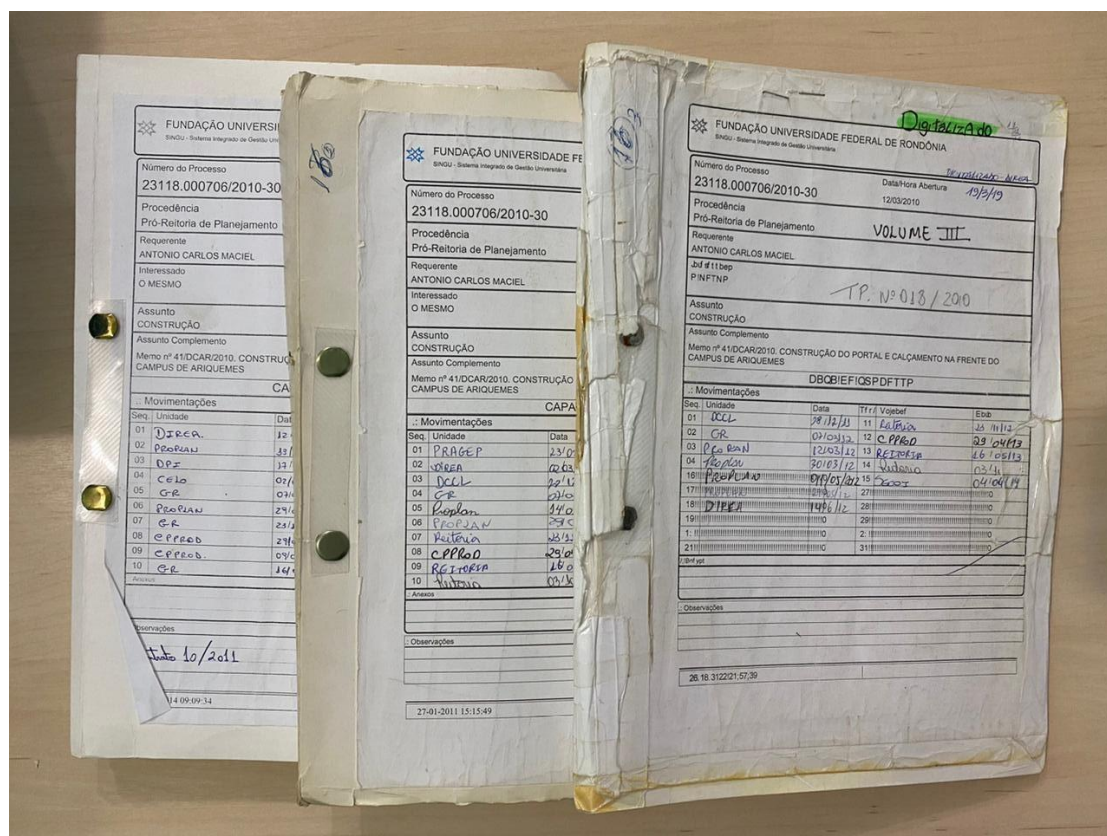 FUNDAÇÃO UNIVERSI
SINGU - Sistema Integrado de Gestão Uni
Número do Processo
23118.000706/2010-30
Procedência
Pró-Reitoria de Planejamento
Requerente
ANTONIO CARLOS MACIEL
Interessado
O MESMO
Assunto
CONSTRUÇÃO
Assunto Complemento
Memo nº 41/DCAR/2010. CONSTRUÇ
CAMPUS DE ARIQUEMES
CA
.: Movimentações
Seq. Unidade Dat
01 DIREA.
02 PROPLAN
03 DPI
04 CELO
05 GR
06 PROPLAN
07 GR
08 CPPROD
09 CPPROD.
10 GR
Anexos
Observações
10/2011
14 09:09:34
FUNDAÇÃO UNIVERSIDADE FE
SINGU - Sistema Integrado de Gestão Universitária
Número do Processo
23118.000706/2010-30
Procedência
Pró-Reitoria de Planejamento
Requerente
ANTONIO CARLOS MACIEL
Interessado
O MESMO
Assunto
CONSTRUÇÃO
Assunto Complemento
Memo nº 41/DCAR/2010. CONSTRUÇÃO
CAMPUS DE ARIQUEMES
CAPA
.: Movimentações
Seq. Unidade Data
01 PRAGEP
02 DIREA
03 DCCL
04 GR
05 Proplan
06 PROPLAN
07 Reitoria
08 CPPROD
09 REITORIA
10 Reitoria
.: Anexos
.: Observações
27-01-2011 15:15:49
Digitalizado
FUNDAÇÃO UNIVERSIDADE FEDERAL DE RONDÔNIA
SINGU - Sistema Integrado de Gestão Universitária
DIGITALIZADO - DIREA
19/3/19
Número do Processo
23118.000706/2010-30
Data/Hora Abertura
12/03/2010
Procedência
Pró-Reitoria de Planejamento
VOLUME III
Requerente
ANTONIO CARLOS MACIEL
P!NFTNP
TP. Nº 018/2010
Assunto
CONSTRUÇÃO
Assunto Complemento
Memo nº 41/DCAR/2010. CONSTRUÇÃO DO PORTAL E CALÇAMENTO NA FRENTE DO
CAMPUS DE ARIQUEMES
DBQB!EF!QSPDFTTP
.: Movimentações
Seq. Unidade Data Tfr/ Vojebef Ebub
01 DCCL 28/12/11 11 Reitoria
02 GR 02/03/12 12 CPPROD 29/04/13
03 PROPLAN 12/03/12 13 REITORIA 16/05/13
04 Proplan 30/03/12 14 Reitoria
16 PROPLAN 15 04/04/19
17 27
18 DIREA 14/6/12 28
19 29
1: 2:
21 31
.: Observações